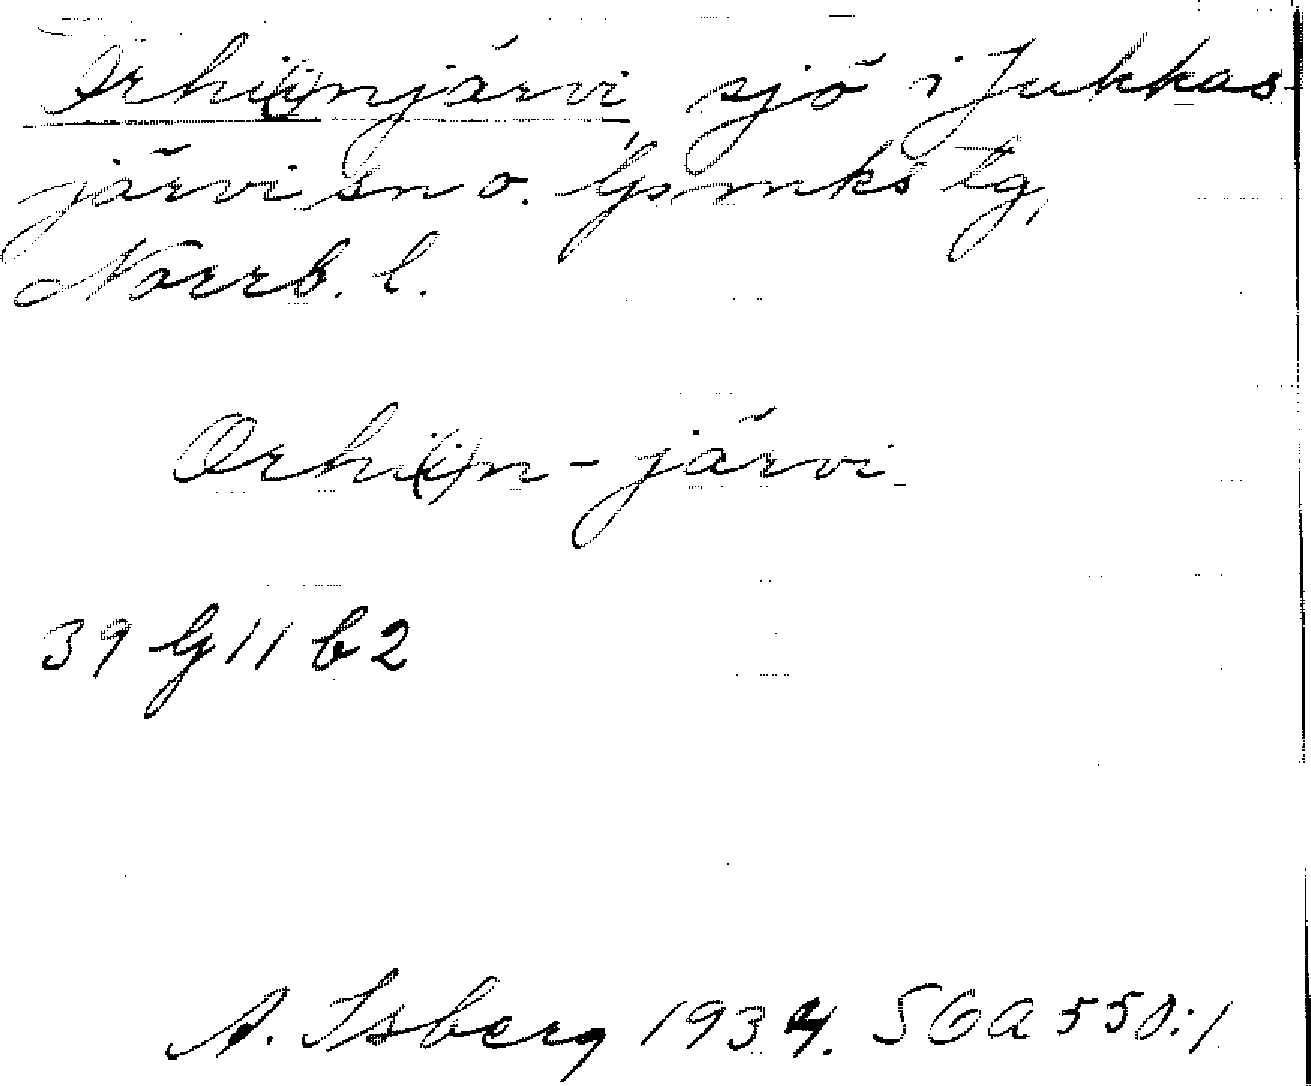 Orhi(i)njärvi sjö i Jukkas-
järvi sn o. lpmks tg,
Norrb. l.
Orhi(i)n-järvi
39 G 11 b 2
A. Isberg 1934. SOA 550:1